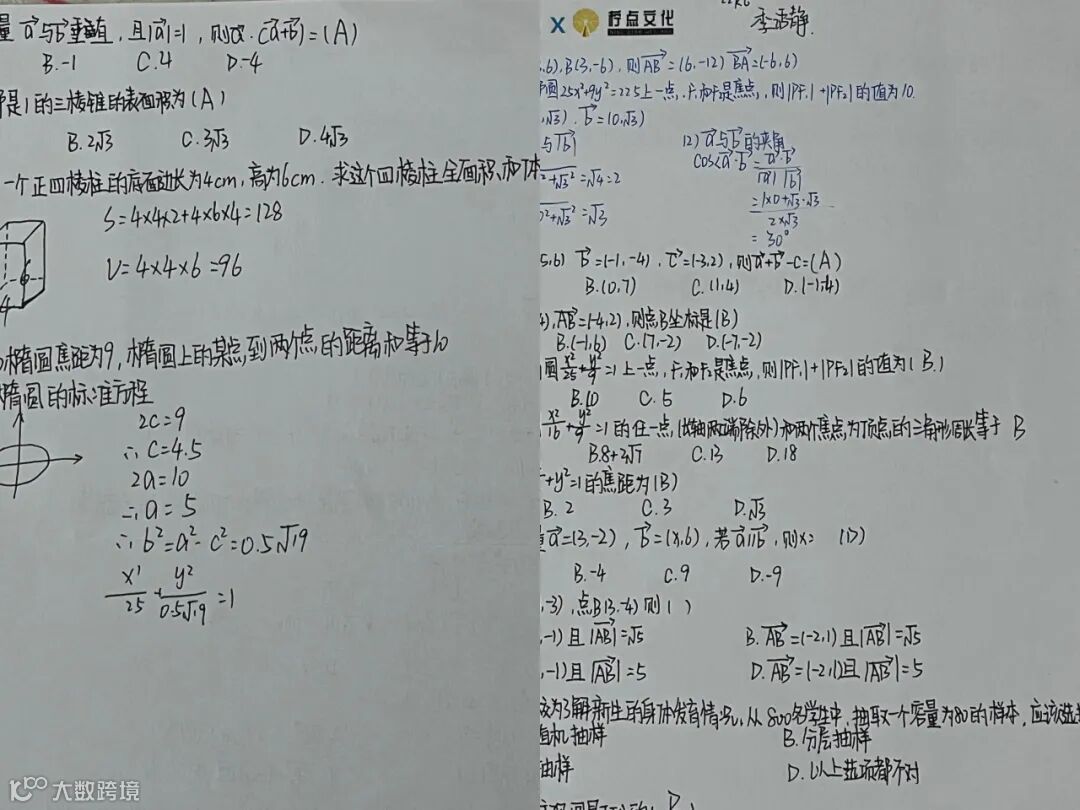 量 a与b垂直, 且|a|=1, 则a·(a+b)=(A)
B.-1 C.4 D.-4
是1的三棱锥的表面积为(A)
B.2√3 C.3√3 D.4√3
一个正四棱柱的底面边长为4cm, 高为6cm. 求这个四棱柱全面积、和体
S=4×4×2+4×6×4=128
V=4×4×6=96
6
4
椭圆焦距为9, 椭圆上的某点到两个点的距离和等于10
椭圆的标准方程
2c=9
∴c=4.5
2a=10
∴a=5
∴b²=a²-c²=0.5√19
x²/25+y²/0.5√19=1
X 柠点文化
李洁静.
,6),B(3,-6), 则AB=(6,-12) BA=(-6,6)
圆25x²+9y²=225上一点, F₁和F₂是焦点, 则|PF₁|+|PF₂|的值为10.
,√3). b=(0,√3)
与|b| (2) a与b的夹角
cos<a·b>=a·b/|a||b|
²+√3²=√4=2
=1×0+√3·√3/2×√3
0²+√3²=√3
=30°
5,6) b=(-1,-4). c=(-3,2), 则a+b-c=(A)
B.(0,7) C.(1,4) D.(-1,4)
4),AB=(-4,2), 则点B坐标是(B)
B.(-1,6) C.(7,-2) D.(-7,-2)
圆x²/25+y²/9=1上一点, F₁和F₂是焦点, 则|PF₁|+|PF₂|的值为(B.)
B.10 C.5 D.6
x²/16+y²/9=1的任一点(长轴两端除外)和两个焦点为顶点的三角形周长等于 B
B.8+2√7 C.13 D.18
+y²=1的焦距为(B)
B.2 C.3 D.√3
量a=(3,-2), b=(x,6), 若a∥b, 则x= (D)
B.-4 C.9 D.-9
,-3), 点B(3,-4)则( )
,-1)且|AB|=√5 B.AB=(-2,1)且|AB|=√5
,-1)且|AB|=5 D.AB=(-2,1)且|AB|=5
校为了解新生的身体发育情况, 从800名学生中, 抽取一个容量为80的样本, 应该选
随机抽样 B.分层抽样
抽样 D.以上选项都不对
大数跨境